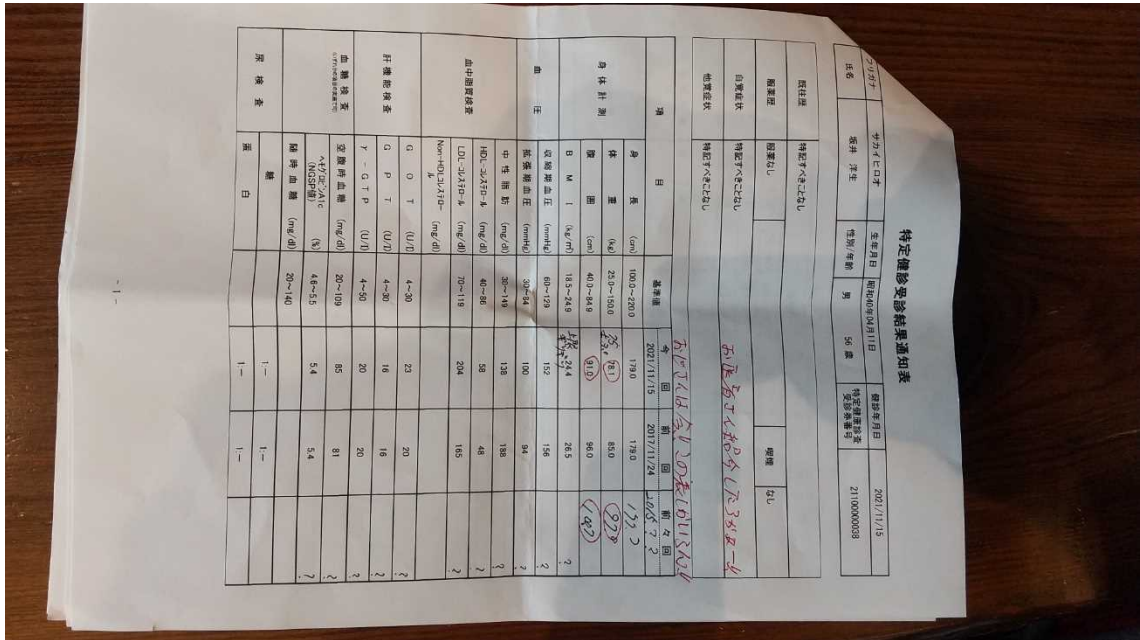 特定健診受診結果通知表
フリガナ サカイヒロオ 生年月日 昭和40年04月11日 健診年月日 2021/11/15
氏名 坂井 洋生 性別/年齢 男 56 歳 特定健康診査受診券番号 21100000038
既往歴 特記すべきことなし
服薬歴 服薬なし 喫煙 なし
自覚症状 特記すべきことなし
他覚症状 特記すべきことなし
項 目 基準値 今 回 2021/11/15 前 回 2017/11/24 前 々 回 2015 ? ?
身体計測 身 長 (cm) 100.0～220.0 179.0 179.0
体 重 (kg) 25.0～150.0 78.1 85.0 97.9
腹 囲 (cm) 40.0～84.9 91.0 96.0
B M I (kg/㎡) 18.5～24.9 24.4 26.5 ?
血 圧 収縮期血圧 (mmHg) 60～129 152 156 ?
拡張期血圧 (mmHg) 30～84 100 94 ?
血中脂質検査 中 性 脂 肪 (mg/dl) 30～149 138 188 ?
HDL-コレステロール (mg/dl) 40～86 58 48
LDL-コレステロール (mg/dl) 70～119 204 165 ?
Non-HDLコレステロール (mg/dl)
肝機能検査 G O T (U/l) 4～30 23 20 ?
G P T (U/l) 4～30 16 16 ?
γ - G T P (U/l) 4～50 20 20 ?
血糖検査 空腹時血糖 (mg/dl) 20～109 85 81 ?
ヘモグロビンA1c (NGSP値) (%) 4.6～5.5 5.4 5.4 ?
随時血糖 (mg/dl) 20～140
尿検査 糖 1:― 1:―
蛋 白 1:― 1:―
- 1 -